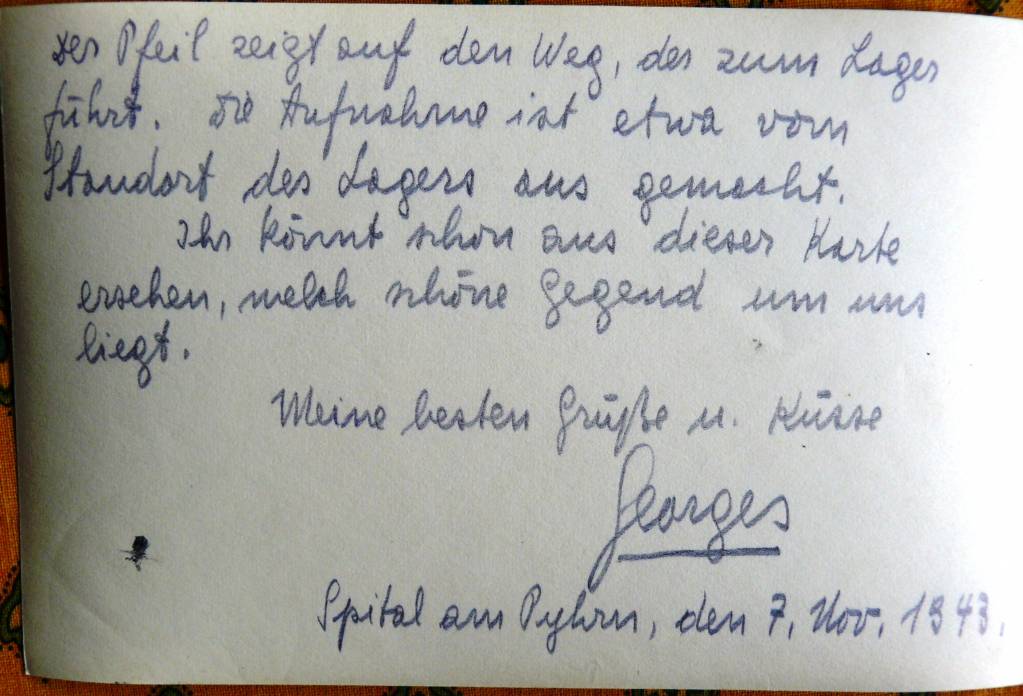 Der Pfeil zeigt auf den Weg, der zum Lager
führt. Die Aufnahme ist etwa vom
Standort des Lagers aus gemacht.
Ihr könnt schon aus dieser Karte
ersehen, welch schöne Gegend um uns
liegt.
Meine besten Grüße u. Küsse
Georges
Spital am Pyhrn, den 7. Nov. 1943.